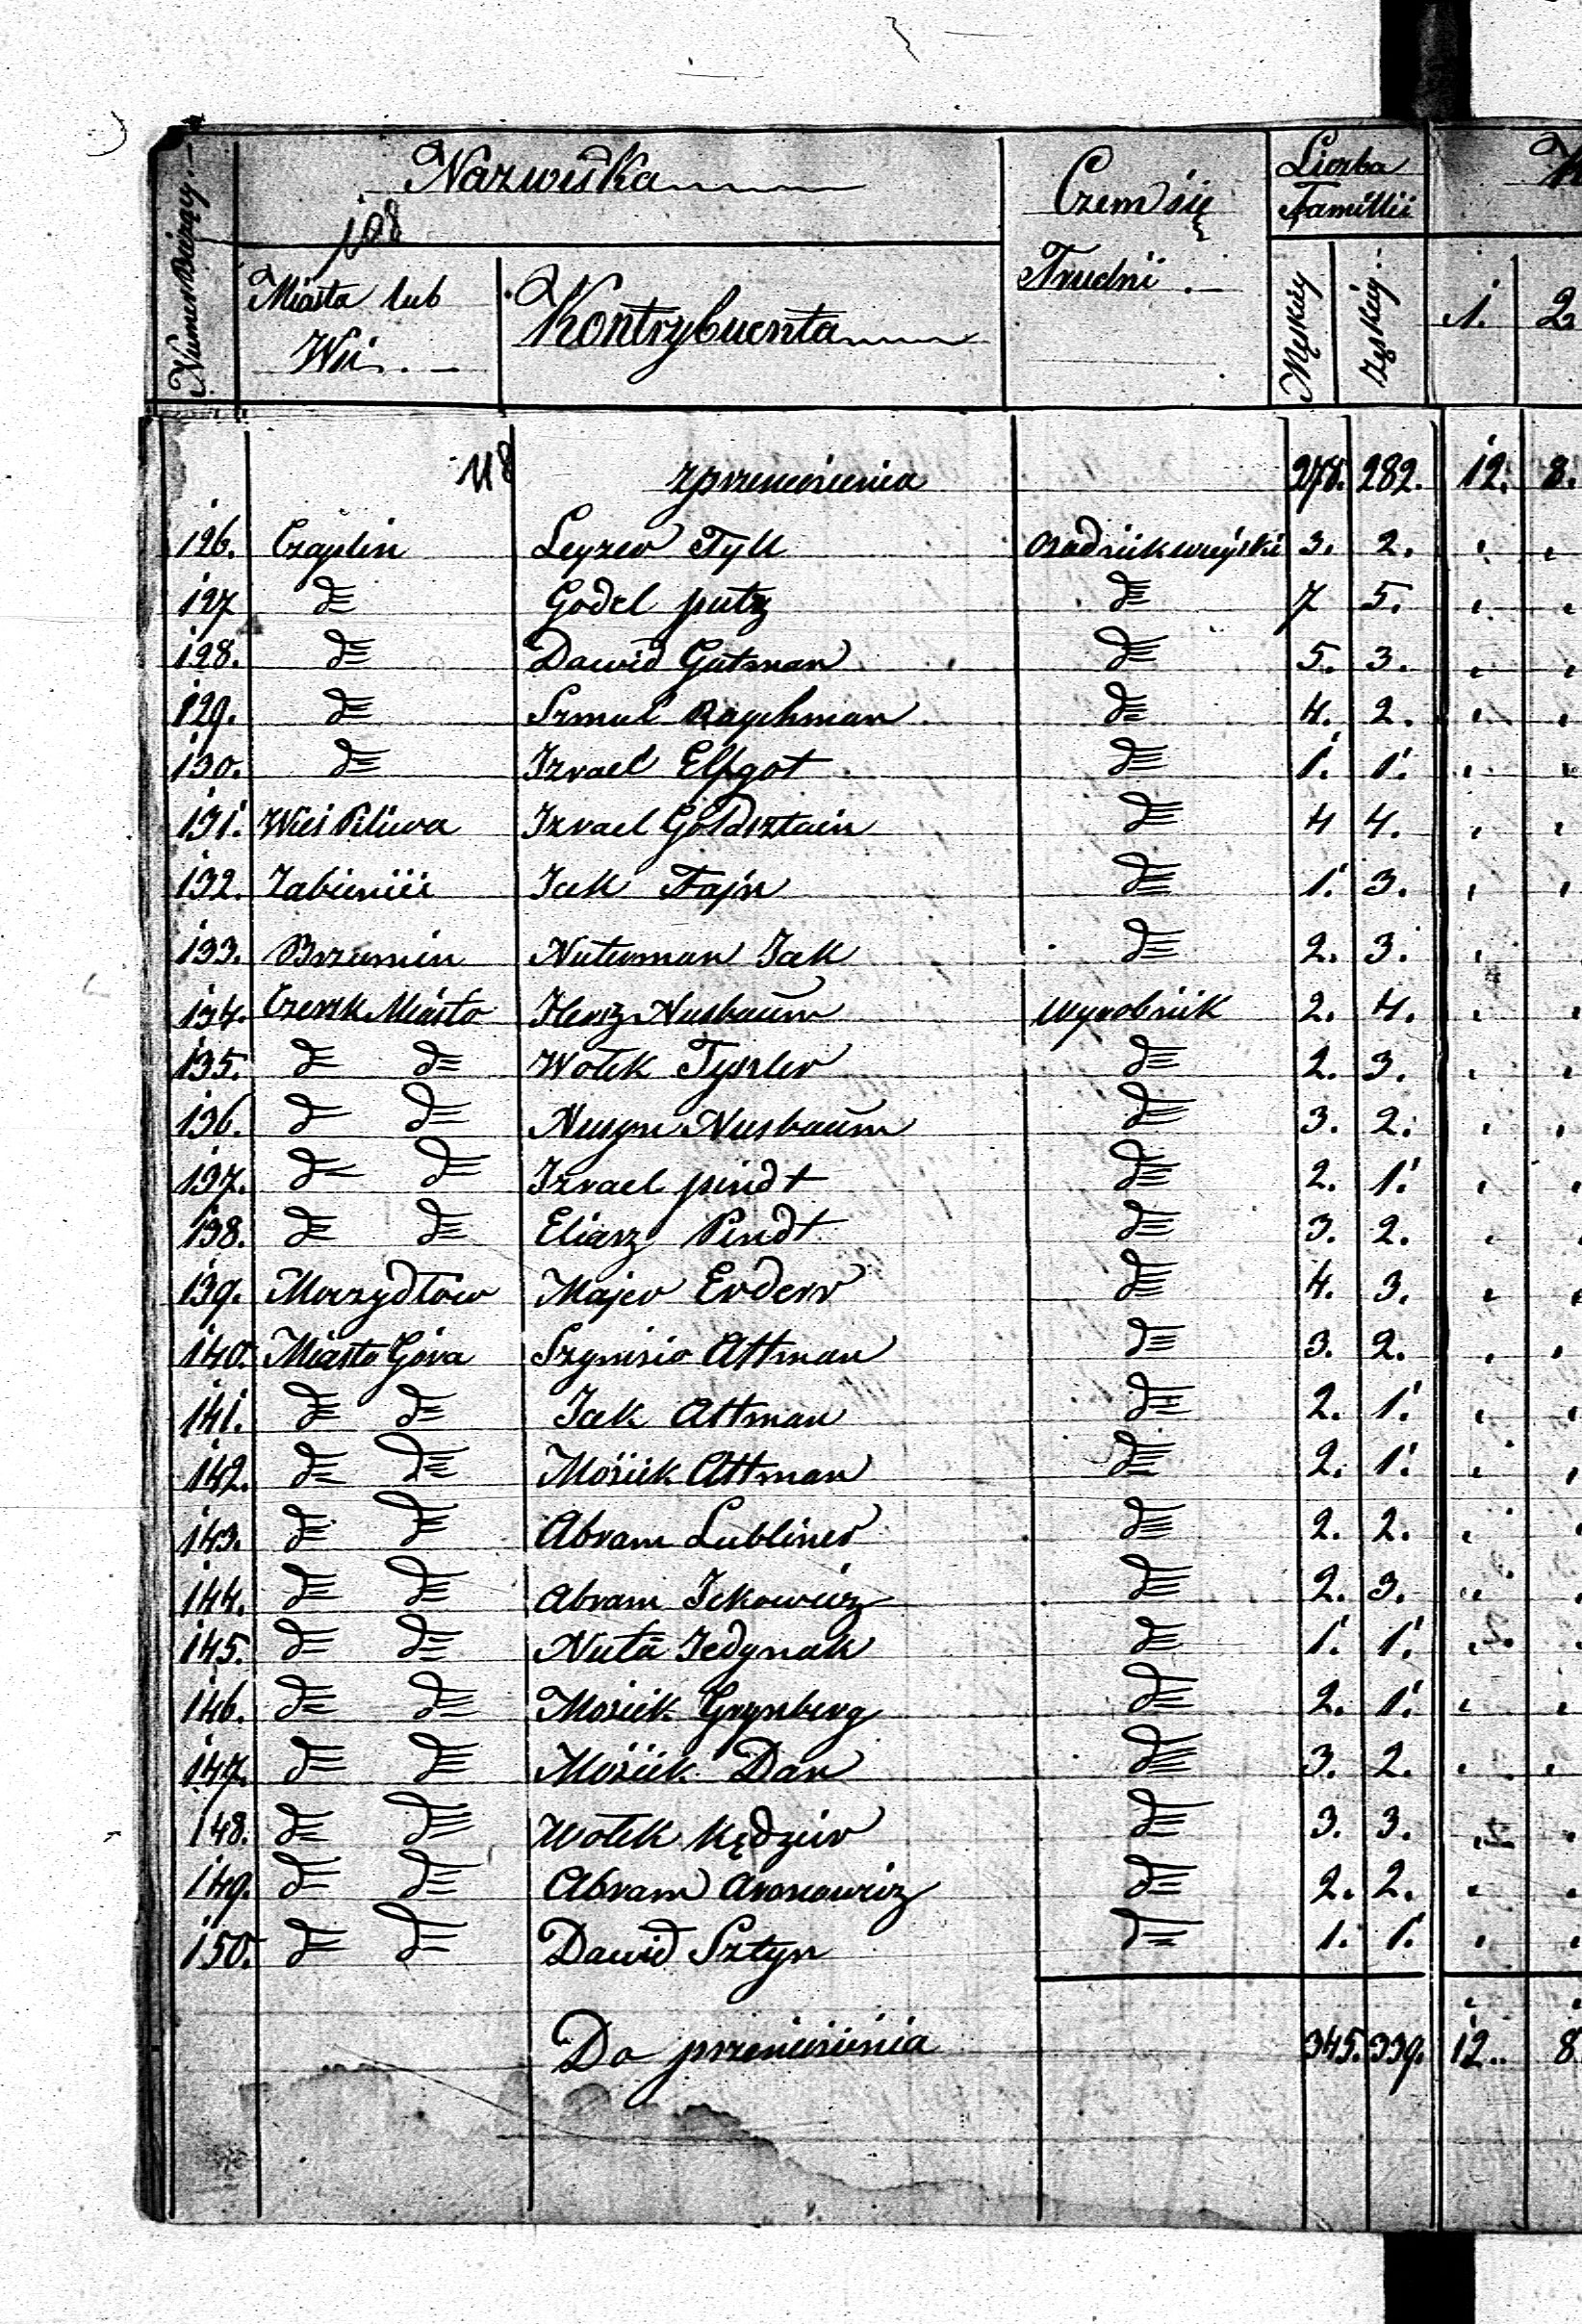 Numer Bieżący
Nazwiska
108
Miasta lub
Wsi
Kontrybuenta
Czem się
Trudni
Liczba
Familii
Męzkiéy
Żęskiéy
1. 2
118 z przeniesienia 278. 282. 12. 8.
126. Czaplin Leyzer Tyll osadnik wieyski 3. 2.
127 d= Godel putz d= 7 5.
128. d= Dawid Gutman d= 5. 3.
129. d= Szmul Raychman d= 4. 2.
130. d= Izrael Elfgot d= 1. 1.
131. Wieś Piliwa Izrael Goldsztain d= 4 4.
132. Zabieniii Icek Fajn d= 1. 3.
133. Brzumin Nuterman Icek d= 2. 3.
134. Czersk Miasto Hersz Nusbaum Wyrobnik 2. 4.
135. d= d= Wolek Tyszler d= 2. 3.
136. d= d= Nusyn Nusbaum d= 3. 2.
137. d= d= Izrael pindt d= 2. 1.
138. d= d= Eliasz Pindt d= 3. 2.
139. Moczydłow Majer Erderr d= 4. 3.
140. Miasto Góra Szymsio Altman d= 3. 2.
141. d= d= Icek Altman d= 2. 1.
142. d= d= Mosiek Altman d= 2. 1.
143. d= d= Abram Lubliner d= 2. 2.
144. d= d= Abram Ickowicz d= 2. 3.
145. d= d= Nuta Jedynak d= 1. 1.
146. d= d= Mosiek Grynberg d= 2. 1.
147. d= d= Mosiek Dan d= 3. 2.
148. d= d= Wolek Kędzier d= 3. 3.
149. d= d= Abram Aronowicz d= 2. 2.
150. d= d= Dawid Sztyn d= 1. 1.
Do przeniesienia 345. 339. 12.. 8